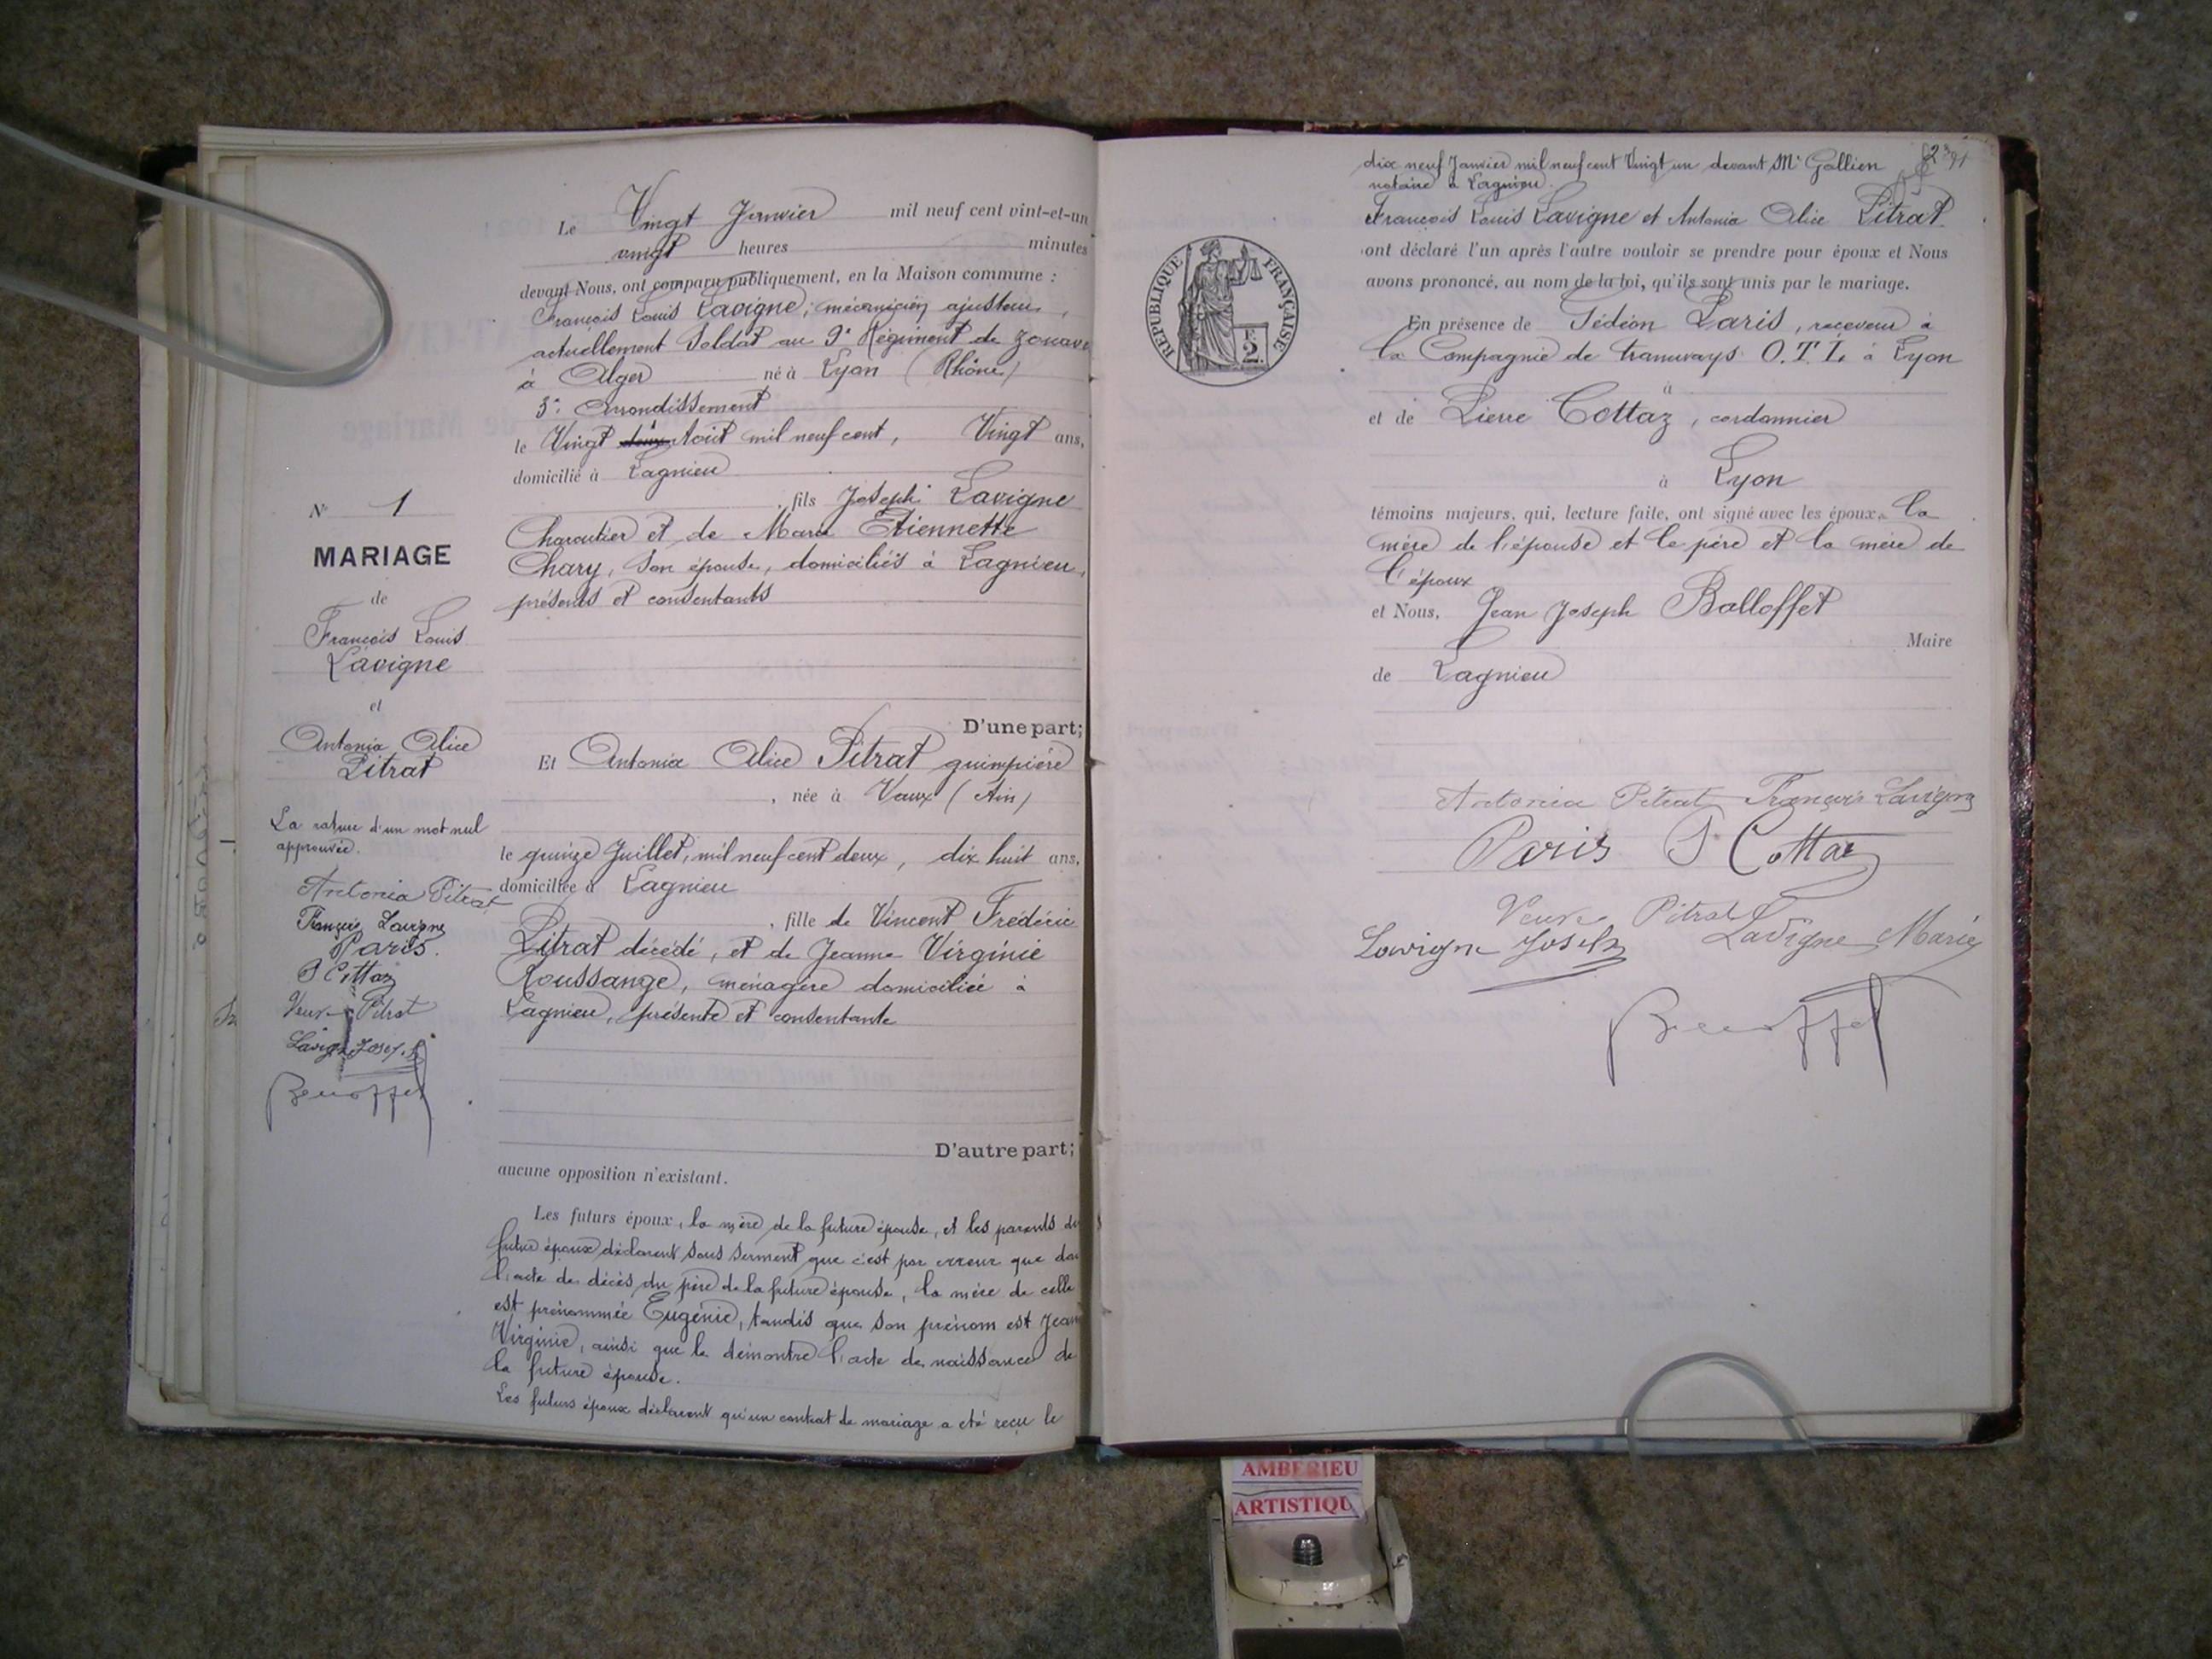 Le Vingt Janvier mil neuf cent vint-et-un
vingt heures minutes
devant Nous, ont comparu publiquement, en la Maison commune :
François Louis Lavigne, mécanicien ajusteur,
actuellement Soldat au 9e Régiment de Zouave
à Alger né à Lyon (Rhône)
3e Arrondissement
le Vingt Août mil neuf cent, Vingt ans,
domicilié à Lagnieu
, fils Joseph Lavigne
Charcutier et de Marie Etiennette
Chary, son épouse, domiciliés à Lagnieu,
présents et consentants
D'une part;
Et Antonia Alice Pitrat guimpière
, née à Vaux (Ain)
le quinze Juillet, mil neuf cent deux, dix huit ans,
domiciliée à Lagnieu
, fille de Vincent Frédéric
Pitrat décédé, et de Jeanne Virginie
Roussange, ménagère domiciliée à
Lagnieu, présente et consentante
D'autre part;
aucune opposition n'existant.
Les futurs époux, la mère de la future épouse, et les parents du
futur époux déclarent sous serment que c'est par erreur que dan
l'acte de décès du père de la future épouse, la mère de celle
est prénommée Eugénie, tandis que son prénom est Jean
Virginie, ainsi que le démontre l'acte de naissance de
la future épouse.
Les futurs époux déclarent qu'un contrat de mariage a été reçu le
N° 1
MARIAGE
de
François Louis
Lavigne
et
Antonia Alice
Pitrat
La rature d'un mot nul
approuvée.
Antonia Pitrat
François Lavigne
Paris.
P Cottaz
Veuve Pitrat
Lavigne Joseph
Balloffet
dix neuf Janvier mil neuf cent Vingt un devant Me Gallien
notaire à Lagnieu.
François Louis Lavigne et Antonia Alice Pitrat
ont déclaré l'un après l'autre vouloir se prendre pour époux et Nous
avons prononcé, au nom de la loi, qu'ils sont unis par le mariage.
En présence de Gédéon Paris, receveur à
la Compagnie de tramways O.T.L. à Lyon
à
et de Pierre Cottaz, cordonnier
à Lyon
témoins majeurs, qui, lecture faite, ont signé avec les époux, la
mère de l'épouse et le père et la mère de
l'époux
et Nous, Jean Joseph Balloffet
Maire
de Lagnieu
RÉPUBLIQUE FRANÇAISE
F.
2.
Antonia Pitrat François Lavigne
Paris P Cottaz
Veuve Pitrat
Lavigne Joseph Lavigne Marie
Balloffet
AMBERIEU
ARTISTIQU